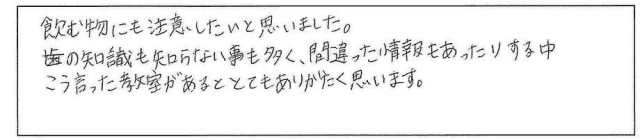 飲む物にも注意したいと思いました。
歯の知識も知らない事も多く、間違った情報もあったりする中
こう言った教室があるととてもありがたく思います。